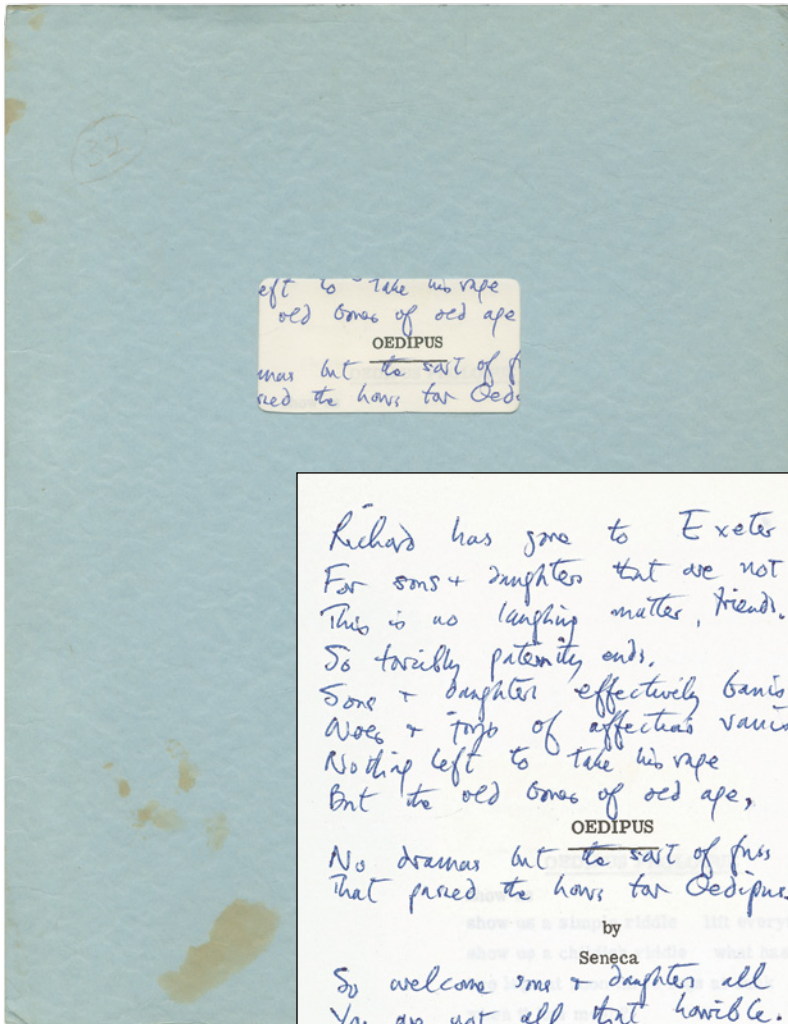 32
eft to Take his rage
old bones of old age
OEDIPUS
mas but the sort of f
sed the hours for Oed
Richard has gone to Exeter
For sons + daughters that are not
This is no laughing matter, friends.
So forcibly paternity ends.
Sons + daughters effectively banis
Woes + joys of affections vanis
Nothing left to take his rage
But the old bones of old age,
OEDIPUS
No dramas but the sort of fuss
That passed the hours for Oedipus.
show us a simple riddle lift every
show us a childish riddle what has
by
Seneca
So welcome sons + daughters all
You are not all that horrible.